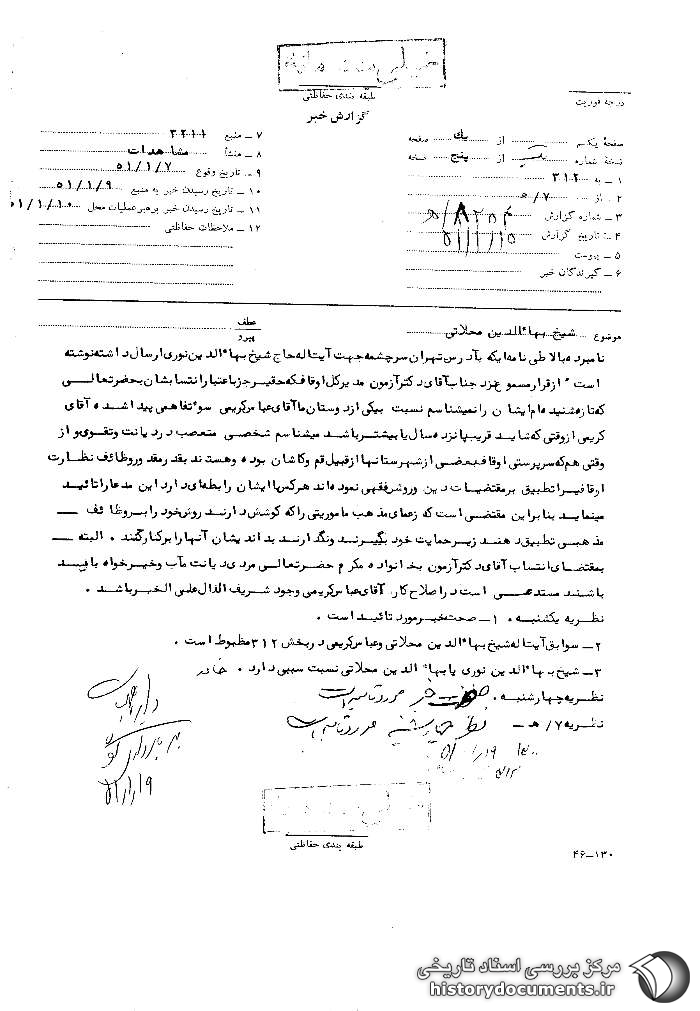 خیلی محرمانه
طبقه بندی حفاظتی
گزارش خبر
درجه فوریت
صفحهٔ یکم از یک صفحه
نسخهٔ شماره از پنج نسخه
۱ ـ به ۳۱۲
۲ ـ از ۷/ه
۳ ـ شماره گزارش
۴ ـ تاریخ گزارش
۵ ـ پیوست
۶ ـ گیرندگان خبر
۷ ـ منبع ۳۲۱۱
۸ ـ منشأ مشاهدات
۹ ـ تاریخ وقوع ۵۱/۱/۷
۱۰ ـ تاریخ رسیدن خبر به منبع ۵۱/۱/۹
۱۱ ـ تاریخ رسیدن خبر به رهبر عملیات محل ۵۱/۱/۱۰
۱۲ ـ ملاحظات حفاظتی
موضوع شیخ بهاءالدین محلاتی
عطف
پیرو
نامبرده بالا طی نامه ایکه بآدرس تهران سرچشمه جهت آیت اله حاج شیخ بهاءالدین نوری ارسال داشته نوشته
است " از قرار مسموع عزد جناب آقای دکتر آزمون مدیر کل اوقاف که حقیر جز باعتبار انتسابشان بحضرتعالی
که تازه شنیده ام ایشان را نمیشناسم نسبت بیکی از دوستان ما آقای عباس کریمی سوءتفاهمی پیدا شده آقای
کریمی از وقتی که شاید قریب پانزده سال یا بیشتر باشد میشناسم شخصی متعصب در دیانت وتقوی و از
وقتی هم که سرپرستی اوقاف بعضی از شهرستانها از قبیل قم وکاشان بوده وهستند بقدر مقدور وظائف نظارت
اوقاف را تطبیق بر مقتضیات دین وروش فقهی نموده اند هرکس با ایشان رابطه ای دارد این مدعا را تائید
مینماید بنابراین مقتضی است که زعمای مذهب ماموریتی را که کوشش دارند روش خود را بر وظائف
مذهبی تطبیق دهند زیر حمایت خود بگیرند ونگذارند بداندیشان آنها را برکنار کنند . البته
بمقتضای انتساب آقای دکتر آزمون بخانواده مکرم حضرتعالی مردی دیانت مآب وخیرخواه باید
باشند مستدعی است در اصلاح کار آقای عباس کریمی وجود شریف الدال علی الخیر باشد .
نظریه یکشنبه . ۱ـ صحت خبر مورد تائید است .
۲ـ سوابق آیت اله شیخ بهاءالدین محلاتی وعباس کریمی در بخش ۳۱۲ مظبوط است .
۳ـ شیخ بهاءالدین نوری با بهاءالدین محلاتی نسبت سببی دارد .
نظریه چهارشنبه . صحت خبر مورد تائید است
نظریه ۷/ه ـ نظریه چهارشنبه مورد تائید است
۵۱/۱/۱۹
طبقه بندی حفاظتی
۴۶ـ۱۳۰
مرکز بررسی اسناد تاریخی
historydocuments.ir